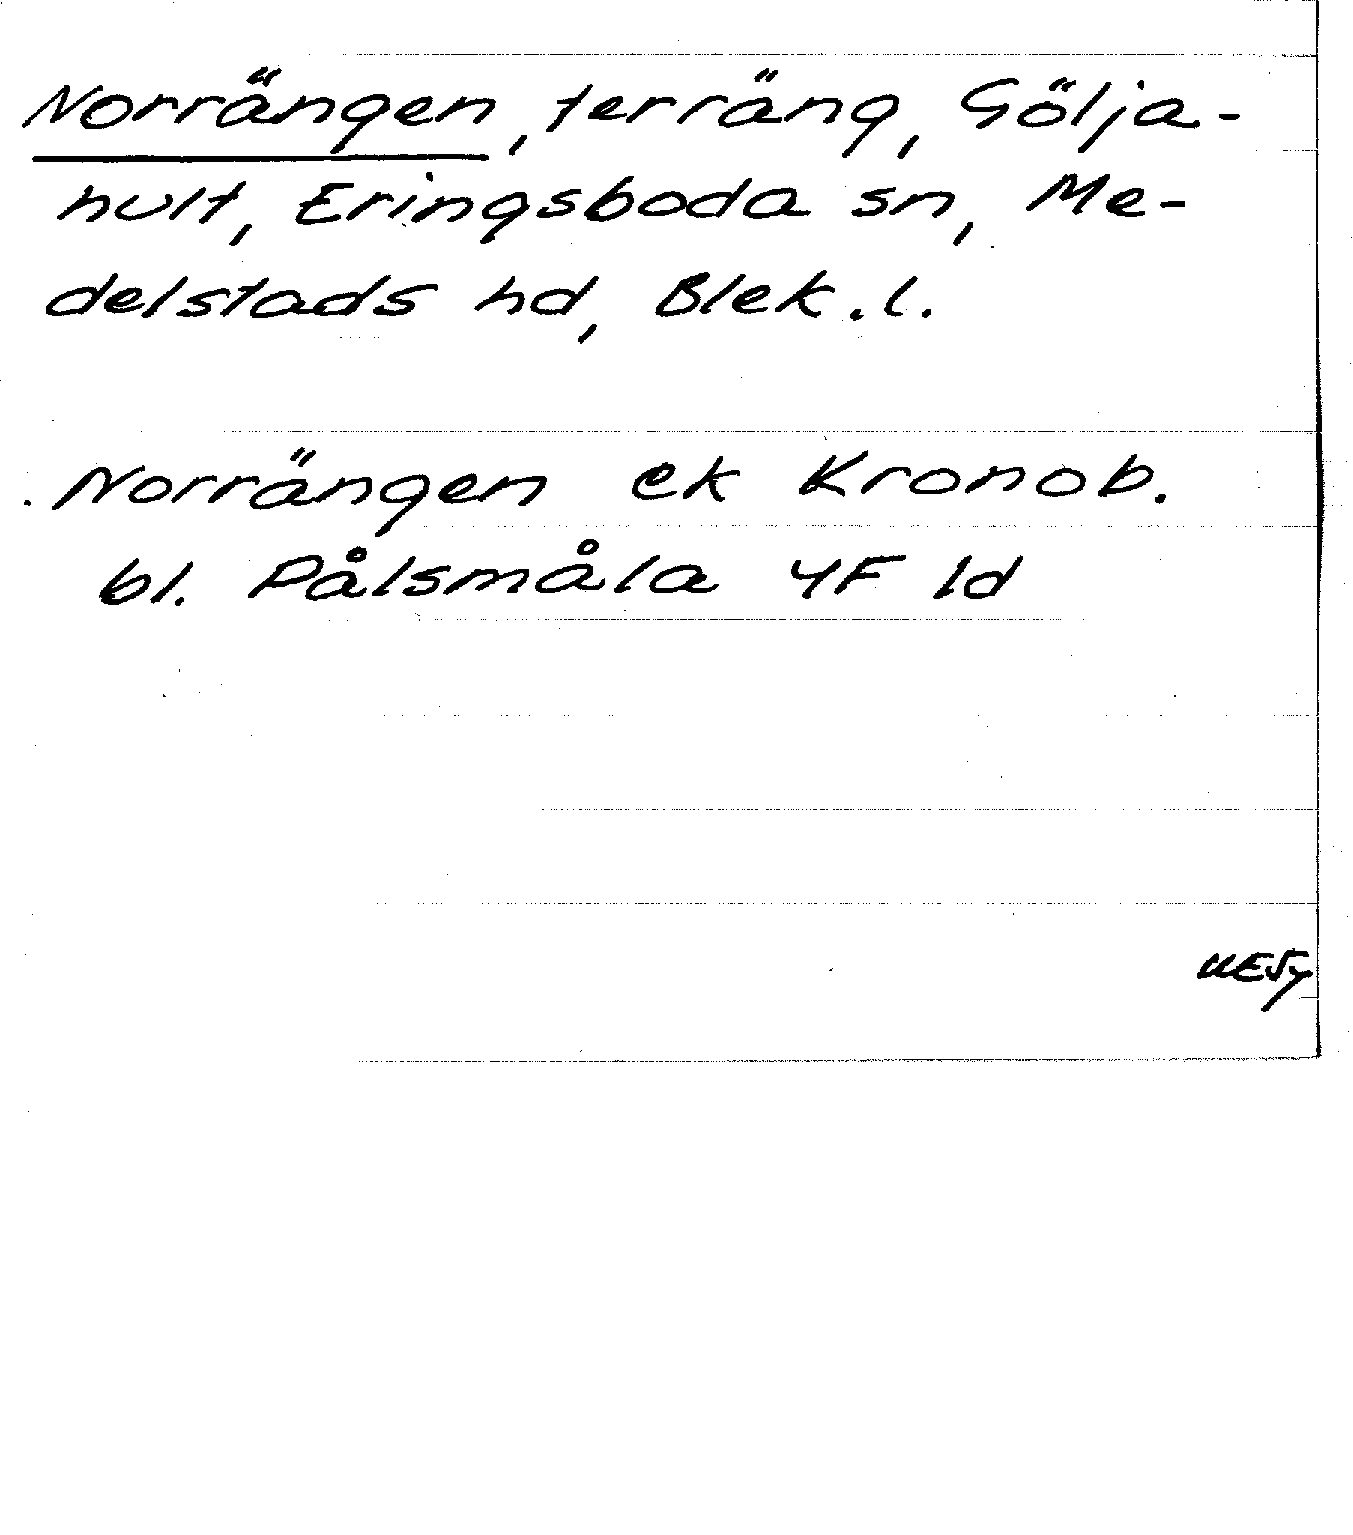 Norrängen, terräng, Gölja-
hult, Eringsboda sn, Me-
delstads hd, Blek. l.
Norrängen ek Kronob.
bl. Pålsmåla 4F 1d